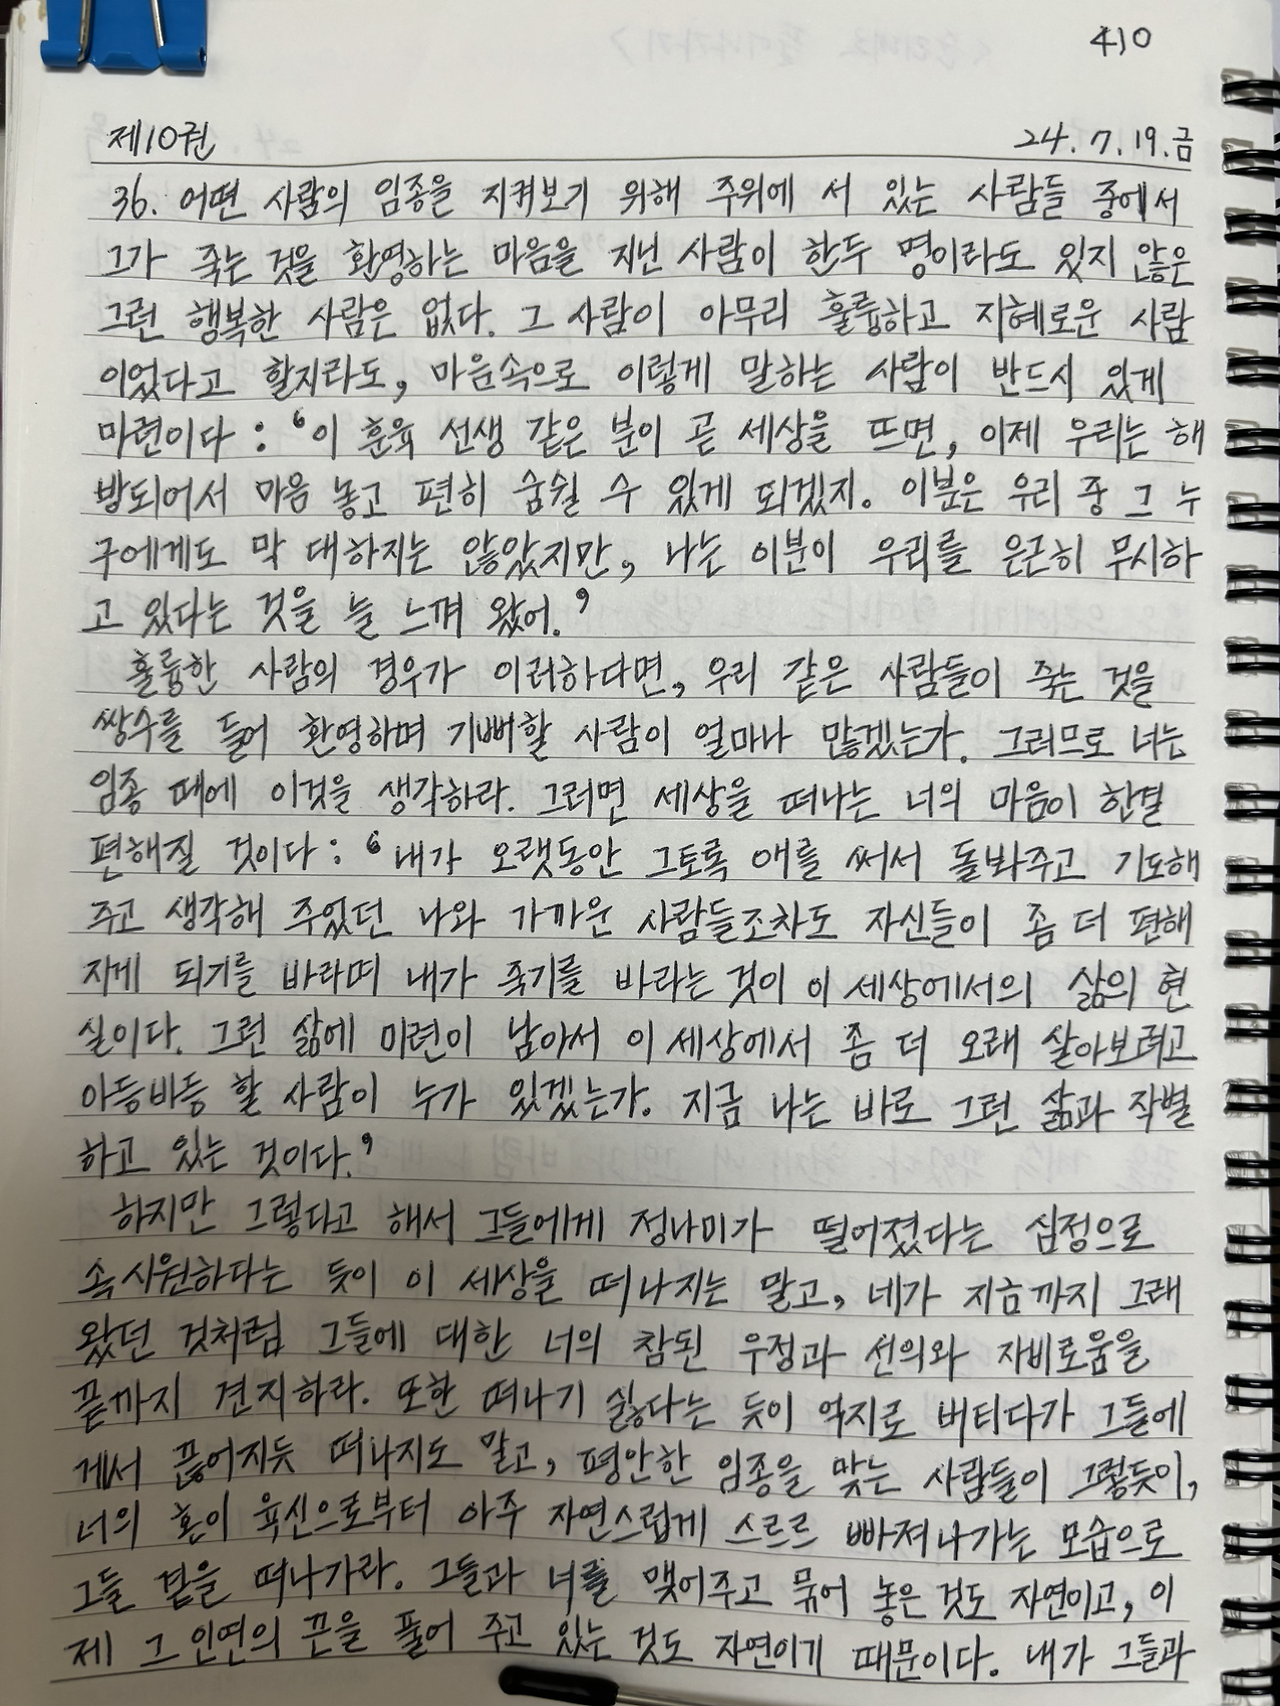 410
제10권 24.7.19.금
36. 어떤 사람의 임종을 지켜보기 위해 주위에 서 있는 사람들 중에서
그가 죽는 것을 환영하는 마음을 지닌 사람이 한두 명이라도 있지 않은
그런 행복한 사람은 없다. 그 사람이 아무리 훌륭하고 지혜로운 사람
이었다고 할지라도, 마음속으로 이렇게 말하는 사람이 반드시 있게
마련이다 : ‘이 훈육 선생 같은 분이 곧 세상을 뜨면, 이제 우리는 해
방되어서 마음 놓고 편히 숨쉴 수 있게 되겠지. 이분은 우리 중 그 누
구에게도 막 대하지는 않았지만, 나는 이분이 우리를 은근히 무시하
고 있다는 것을 늘 느껴 왔어.’
훌륭한 사람의 경우가 이러하다면, 우리 같은 사람들이 죽는 것을
쌍수를 들어 환영하며 기뻐할 사람이 얼마나 많겠는가. 그러므로 너는
임종 때에 이것을 생각하라. 그러면 세상을 떠나는 너의 마음이 한결
편해질 것이다 : ‘내가 오랫동안 그토록 애를 써서 돌봐주고 기도해
주고 생각해 주었던 나와 가까운 사람들조차도 자신들이 좀 더 편해
지게 되기를 바라며 내가 죽기를 바라는 것이 이 세상에서의 삶의 현
실이다. 그런 삶에 미련이 남아서 이 세상에서 좀 더 오래 살아보려고
아등바등 할 사람이 누가 있겠는가. 지금 나는 바로 그런 삶과 작별
하고 있는 것이다.’
하지만 그렇다고 해서 그들에게 정나미가 떨어졌다는 심정으로
속시원하다는 듯이 이 세상을 떠나지는 말고, 네가 지금까지 그래
왔던 것처럼 그들에 대한 너의 참된 우정과 선의와 자비로움을
끝까지 견지하라. 또한 떠나기 싫다는 듯이 억지로 버티다가 그들에
게서 끊어지듯 떠나지도 말고, 평안한 임종을 맞는 사람들이 그렇듯이,
너의 혼이 육신으로부터 아주 자연스럽게 스르르 빠져나가는 모습으로
그들 곁을 떠나가라. 그들과 너를 맺어주고 묶어 놓은 것도 자연이고, 이
제 그 인연의 끈을 풀어 주고 있는 것도 자연이기 때문이다. 내가 그들과